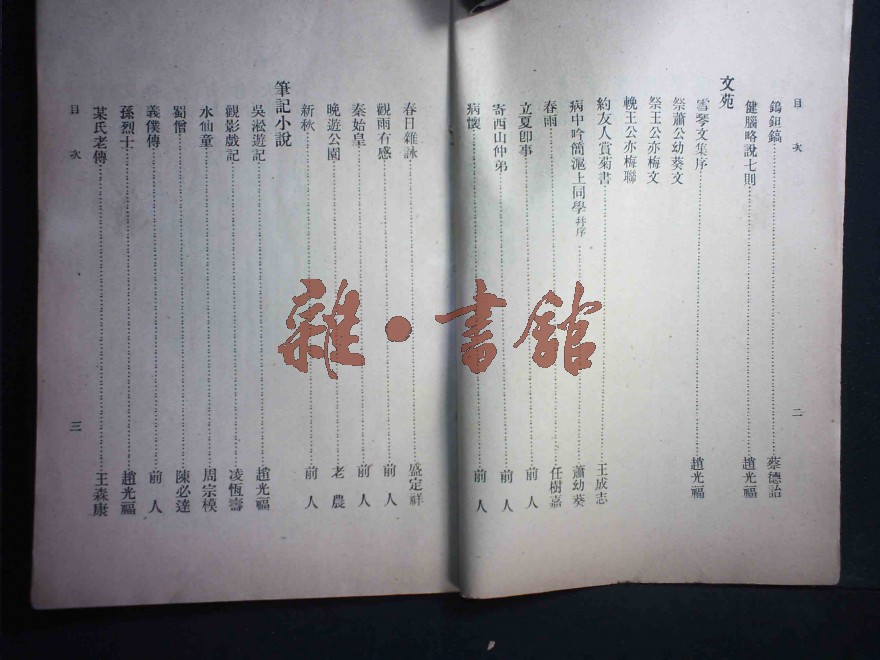 目次
二
鎢鉬鎬……蔡德詒
健腦略說七則……趙光福
文苑
雪琴文集序……趙光福
祭蕭公幼葵文
祭王公亦梅文
輓王公亦梅聯
約友人賞菊書……王成志
病中吟簡滬上同學并序……蕭幼葵
春雨……任樹嘉
立夏即事……前人
寄西山仲弟……前人
病懷……前人
春日雜詠……盛定祥
觀雨有感……前人
秦始皇……前人
晚遊公園……老農
新秋……前人
筆記小說
吳淞遊記……趙光福
觀影戲記……凌恆壽
水仙童……周宗模
蜀僧……陳必達
義僕傳……前人
孫烈士……趙光福
某氏老傳……王森康
目次
三
雜·書館